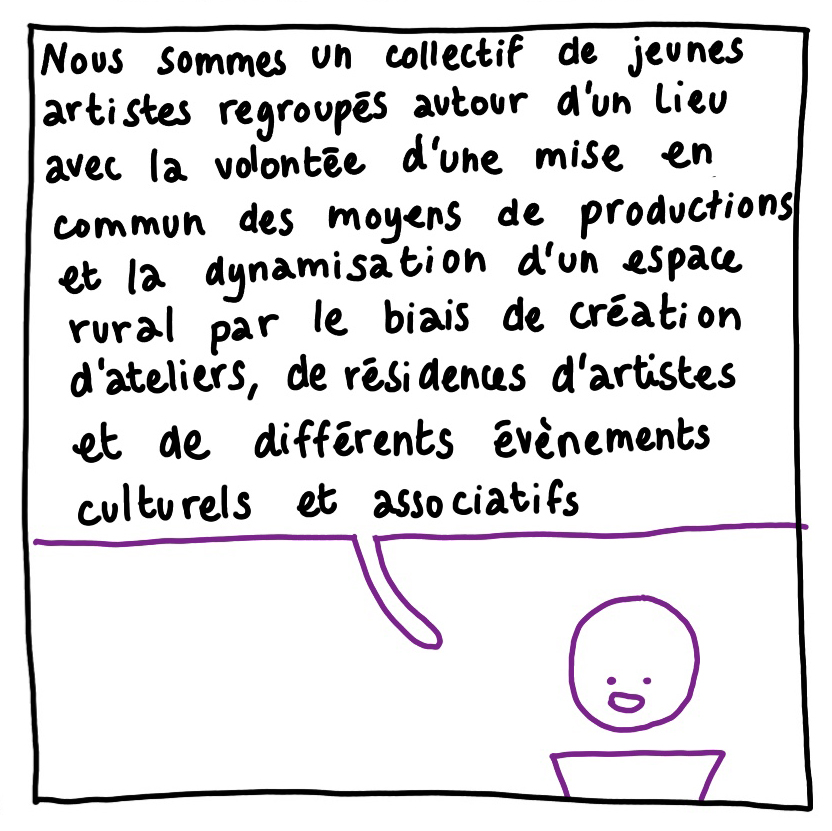 Nous sommes un collectif de jeunes
artistes regroupés autour d'un lieu
avec la volontée d'une mise en
commun des moyens de productions
et la dynamisation d'un espace
rural par le biais de création
d'ateliers, de résidences d'artistes
et de différents évènements
culturels et associatifs